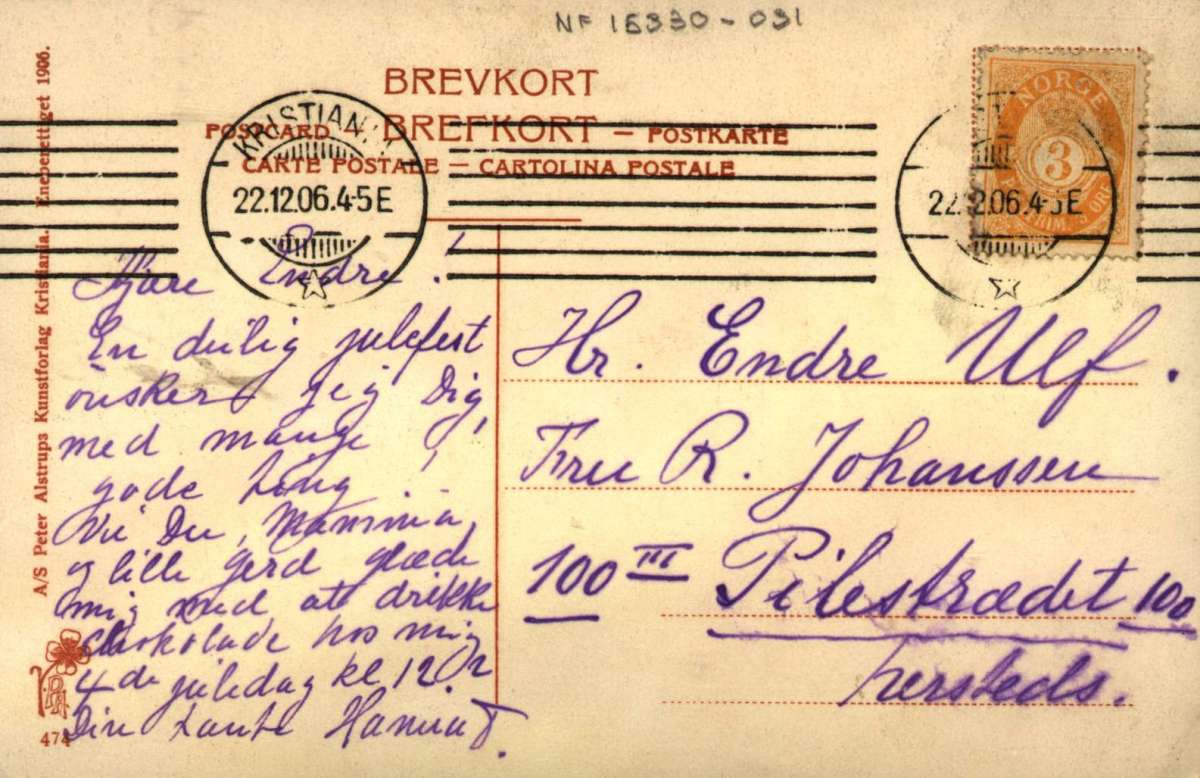 NF 15330-031
BREVKORT
BREFKORT
POSTCARD — POSTKARTE
CARTE POSTALE — CARTOLINA POSTALE
KRISTIANIA
22.12.06.4-5E
22.12.06.4-5E
NORGE
3
A/S Peter Alstrups Kunstforlag Kristiania. Eneberettiget 1906.
474
Kjære Endre!
En deilig julefest
önsker jeg Dig,
med mange
gode ting!
Vil Du, Mamma,
og lille Gerd glæde
mig med at drikke
chokolade hos mig
4de juledag kl 12 1/2
Din tante Hanna J.
Hr. Endre Ulf.
Fru R. Johanssen
100 III Pilestrædet 100
hersteds.